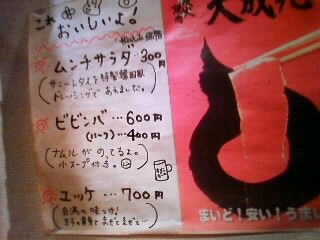 これ
おいしいよ。
税込み価格
ムンチサラダ…300円
(サニーレタスを特製韓国風
ドレッシングであえました。)
ビビンバ…600円
(ハーフ)…400円
(ナムルがのってるよ。
小スープ付き。)
ユッケ…700円
大成苑
まいど!安い!うまい